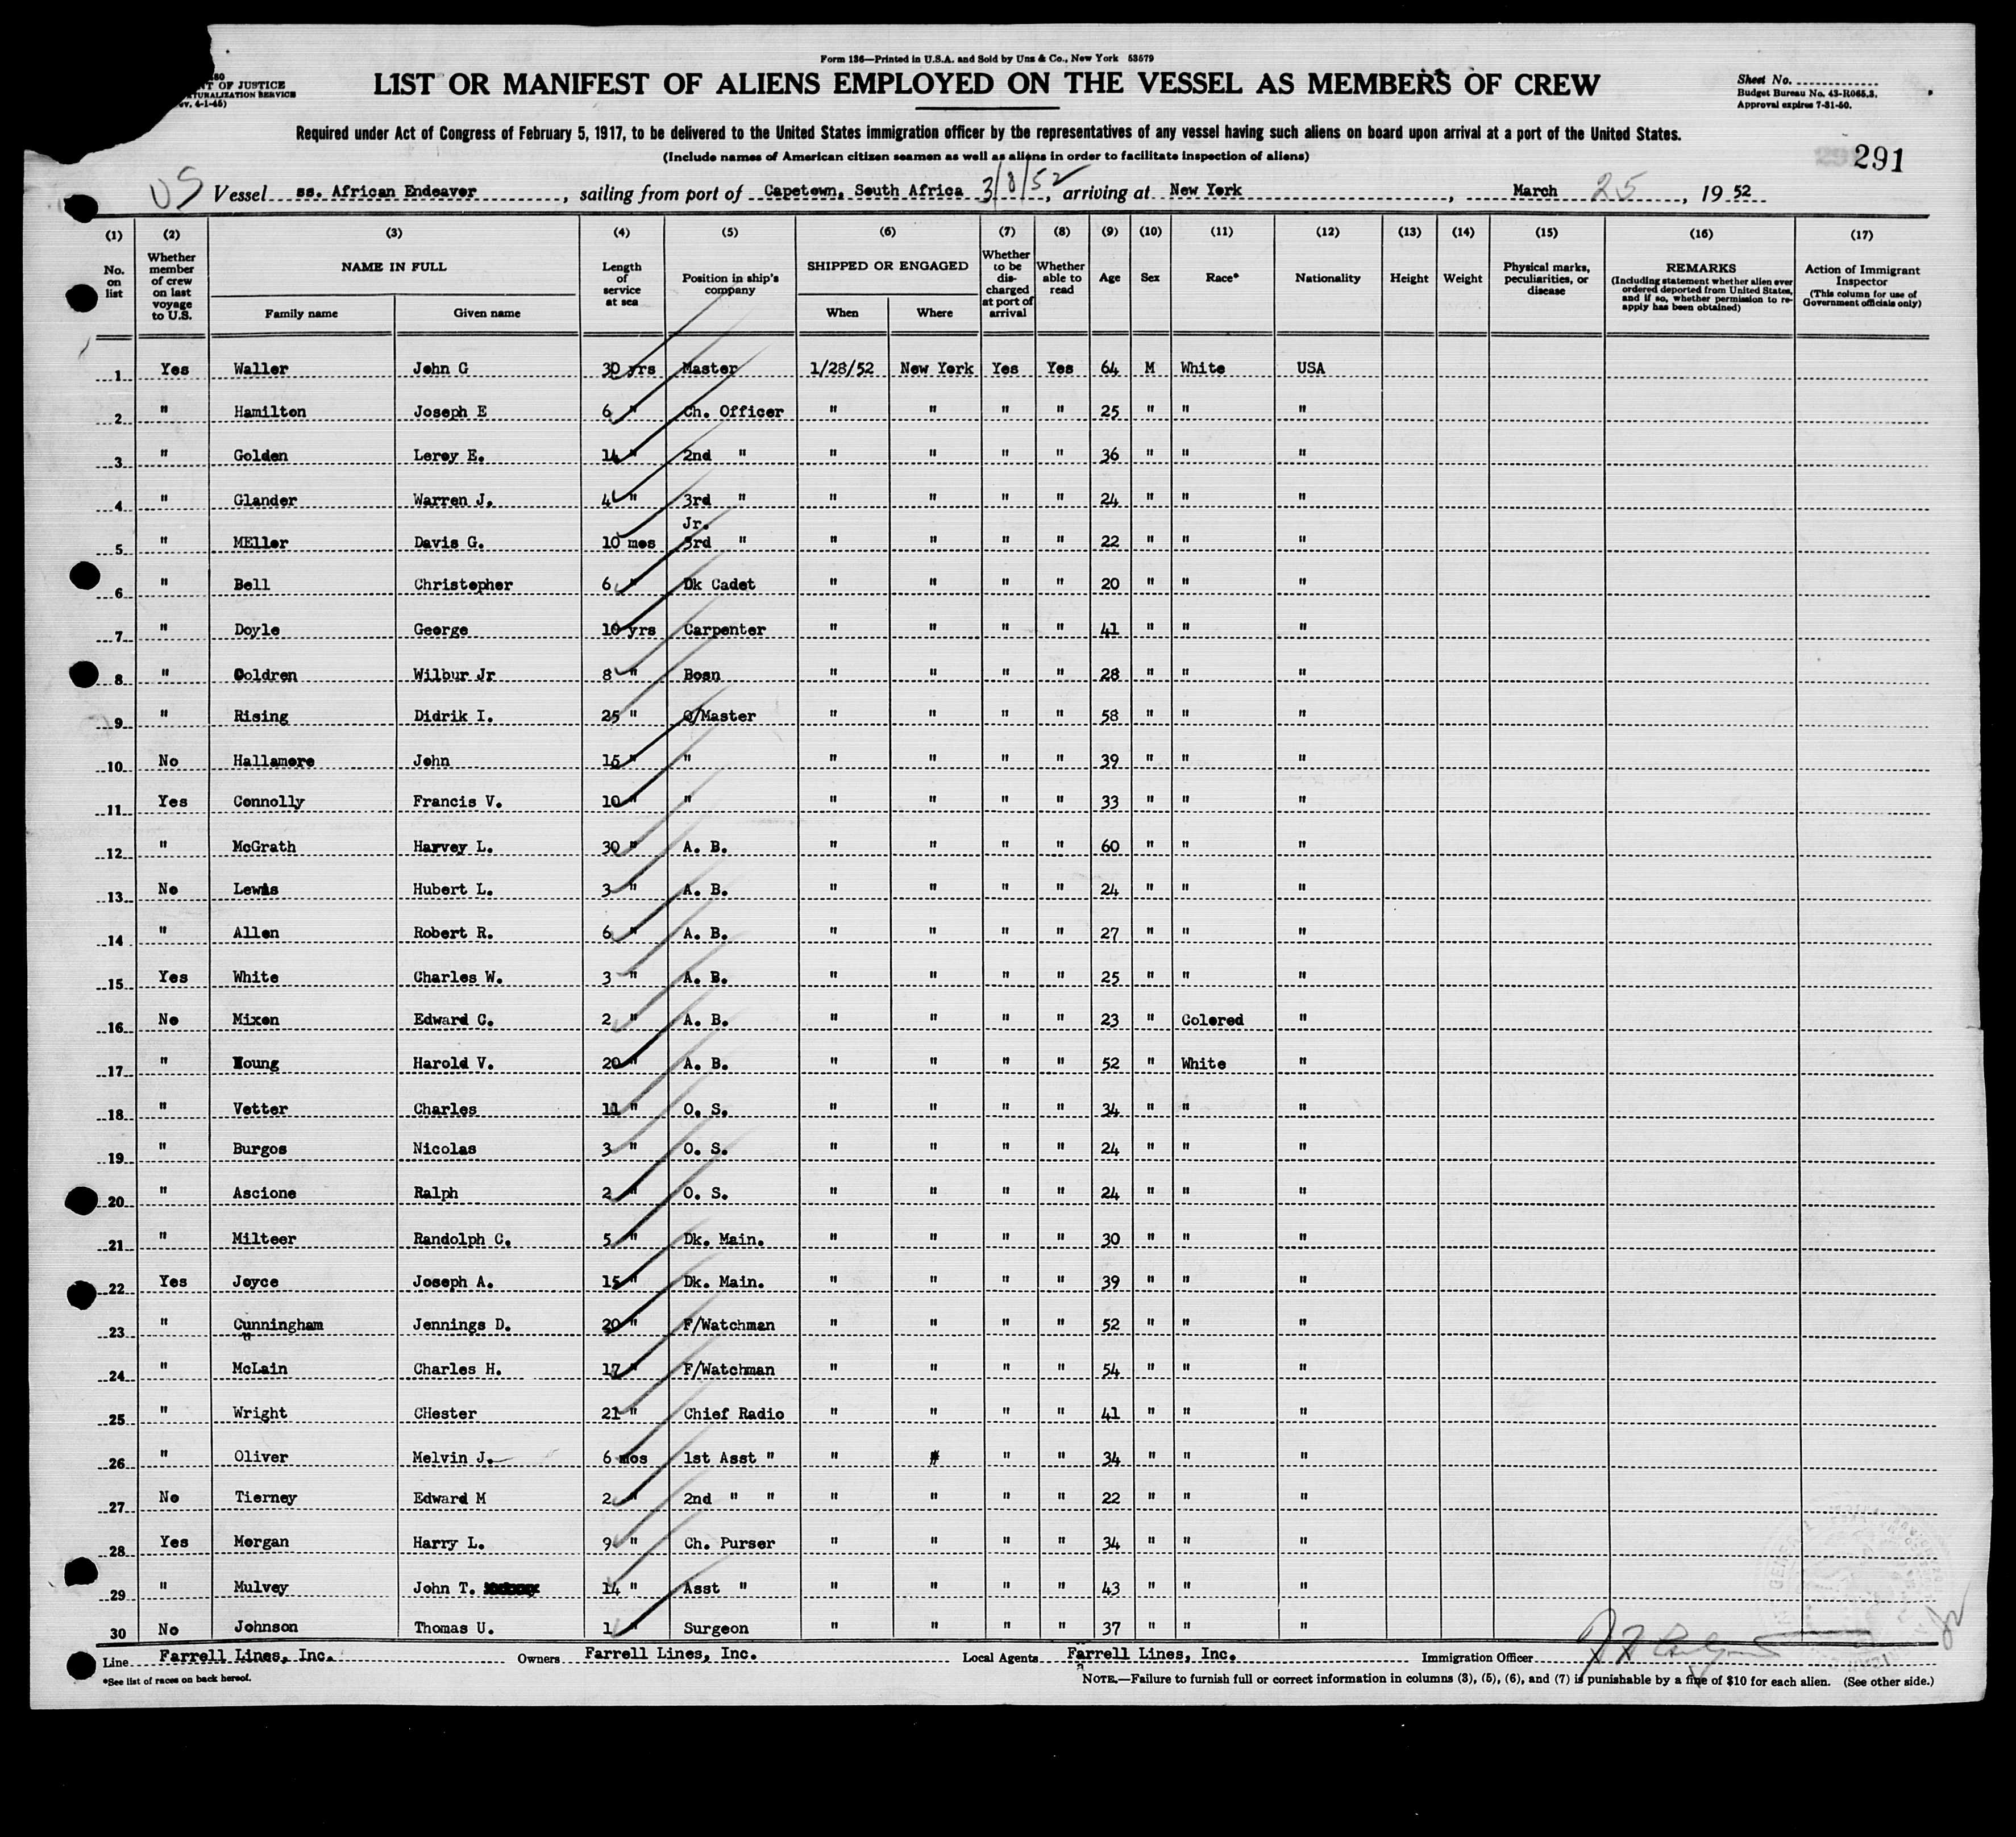 Form 136—Printed in U.S.A. and Sold by Unz & Co., New York 53579
LIST OR MANIFEST OF ALIENS EMPLOYED ON THE VESSEL AS MEMBERS OF CREW
OF JUSTICE
4-1-45)
Sheet No.
Budget Bureau No. 43-R065.3.
Approval expires 7-31-50.
Required under Act of Congress of February 5, 1917, to be delivered to the United States immigration officer by the representatives of any vessel having such aliens on board upon arrival at a port of the United States.
(Include names of American citizen seamen as well as aliens in order to facilitate inspection of aliens)
291
US Vessel ss. African Endeavor, sailing from port of Capetown, South Africa 3/8/52, arriving at New York, March 25, 1952
(1) (2) (3) (4) (5) (6) (7) (8) (9) (10) (11) (12) (13) (14) (15) (16) (17)
No. on list
Whether member of crew on last voyage to U.S.
NAME IN FULL
Family name Given name
Length of service at sea
Position in ship's company
SHIPPED OR ENGAGED
When Where
Whether to be discharged at port of arrival
Whether able to read
Age Sex Race* Nationality Height Weight
Physical marks, peculiarities, or disease
REMARKS
(Including statement whether alien ever ordered deported from United States, and if so, whether permission to re-apply has been obtained)
Action of Immigrant Inspector
(This column for use of Government officials only)
1 Yes Waller John G 30 yrs Master 1/28/52 New York Yes Yes 64 M White USA
2 " Hamilton Joseph E 6 " Ch. Officer " " " " 25 " " "
3 " Golden Leroy E. 14 " 2nd " " " " " 36 " " "
4 " Glander Warren J. 4 " 3rd " " " " " 24 " " "
Jr.
5 " MEller Davis G. 10 mos 3rd " " " " " 22 " " "
6 " Bell Christopher 6 " Dk Cadet " " " " 20 " " "
7 " Doyle George 10 yrs Carpenter " " " " 41 " " "
8 " Coldren Wilbur Jr 8 " Bosn " " " " 28 " " "
9 " Rising Didrik I. 25 " Q/Master " " " " 58 " " "
10 No Hallamore John 15 " " " " " " 39 " " "
11 Yes Connolly Francis V. 10 " " " " " " 33 " " "
12 " McGrath Harvey L. 30 " A. B. " " " " 60 " " "
13 No Lewis Hubert L. 3 " A. B. " " " " 24 " " "
14 " Allen Robert R. 6 " A. B. " " " " 27 " " "
15 Yes White Charles W. 3 " A. B. " " " " 25 " " "
16 No Mixon Edward C. 2 " A. B. " " " " 23 " Colored "
17 " Young Harold V. 20 " A. B. " " " " 52 " White "
18 " Vetter Charles 11 " O. S. " " " " 34 " " "
19 " Burgos Nicolas 3 " O. S. " " " " 24 " " "
20 " Ascione Ralph 2 " O. S. " " " " 24 " " "
21 " Milteer Randolph C. 5 " Dk. Main. " " " " 30 " " "
22 Yes Joyce Joseph A. 15 " Dk. Main. " " " " 39 " " "
23 " Cunningham Jennings D. 20 " F/Watchman " " " " 52 " " "
24 " McLain Charles H. 17 " F/Watchman " " " " 54 " " "
25 " Wright CHester 21 " Chief Radio " " " " 41 " " "
26 " Oliver Melvin J. 6 mos 1st Asst " " " " " 34 " " "
27 No Tierney Edward M 2 " 2nd " " " " " " 22 " " "
28 Yes Morgan Harry L. 9 " Ch. Purser " " " " 34 " " "
29 " Mulvey John T. 14 " Asst " " " " " 43 " " "
30 No Johnson Thomas U. 1 " Surgeon " " " " 37 " " "
Line Farrell Lines, Inc. Owners Farrell Lines, Inc. Local Agents Farrell Lines, Inc. Immigration Officer
*See list of races on back hereof.
NOTE.—Failure to furnish full or correct information in columns (3), (5), (6), and (7) is punishable by a fine of $10 for each alien. (See other side.)